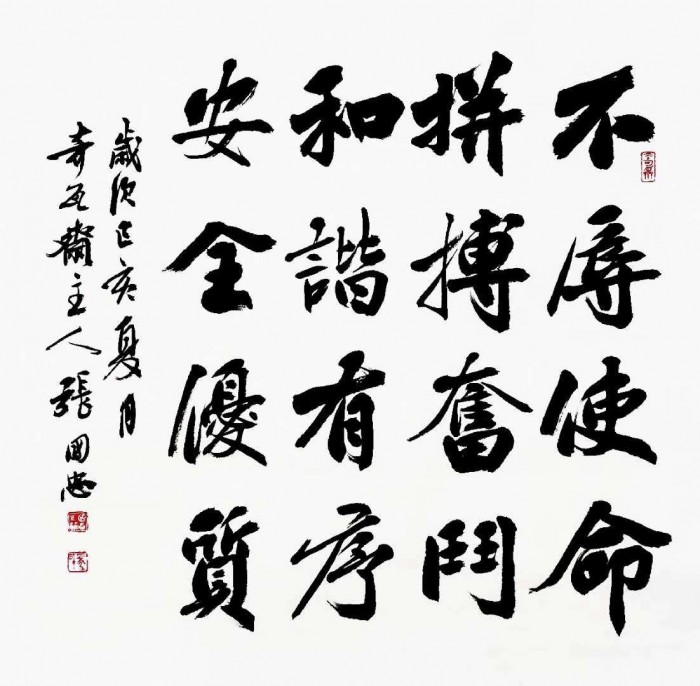 不辱使命
拼搏奮鬥
和諧有序
安全優質
歲次己亥夏月
奇石齋主人張國忠